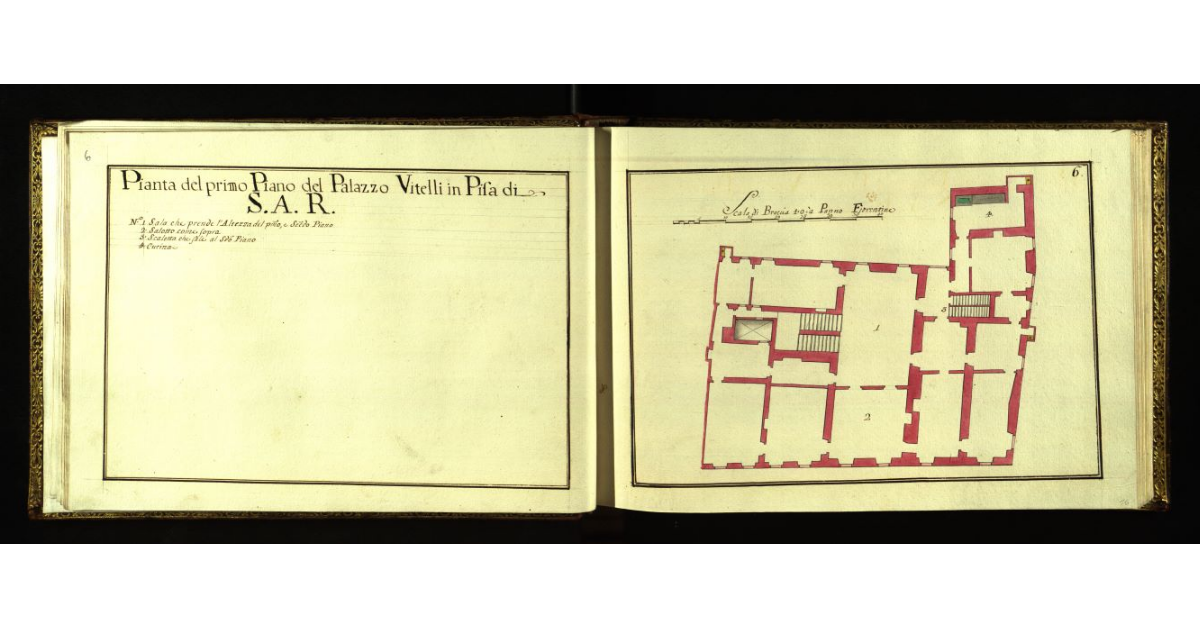 6
Pianta del primo Piano del Palazzo Vitelli in Pisa di
S. A. R.
N.º 1 Sala che prende l'Altezza del piso, e Seldo Piano
2 Salotto come sopra
3 Scaletta che sale al Sdº Piano
4 Cucina
6.
Scala di Braccia Panno Fiorentine
4
3
1
2